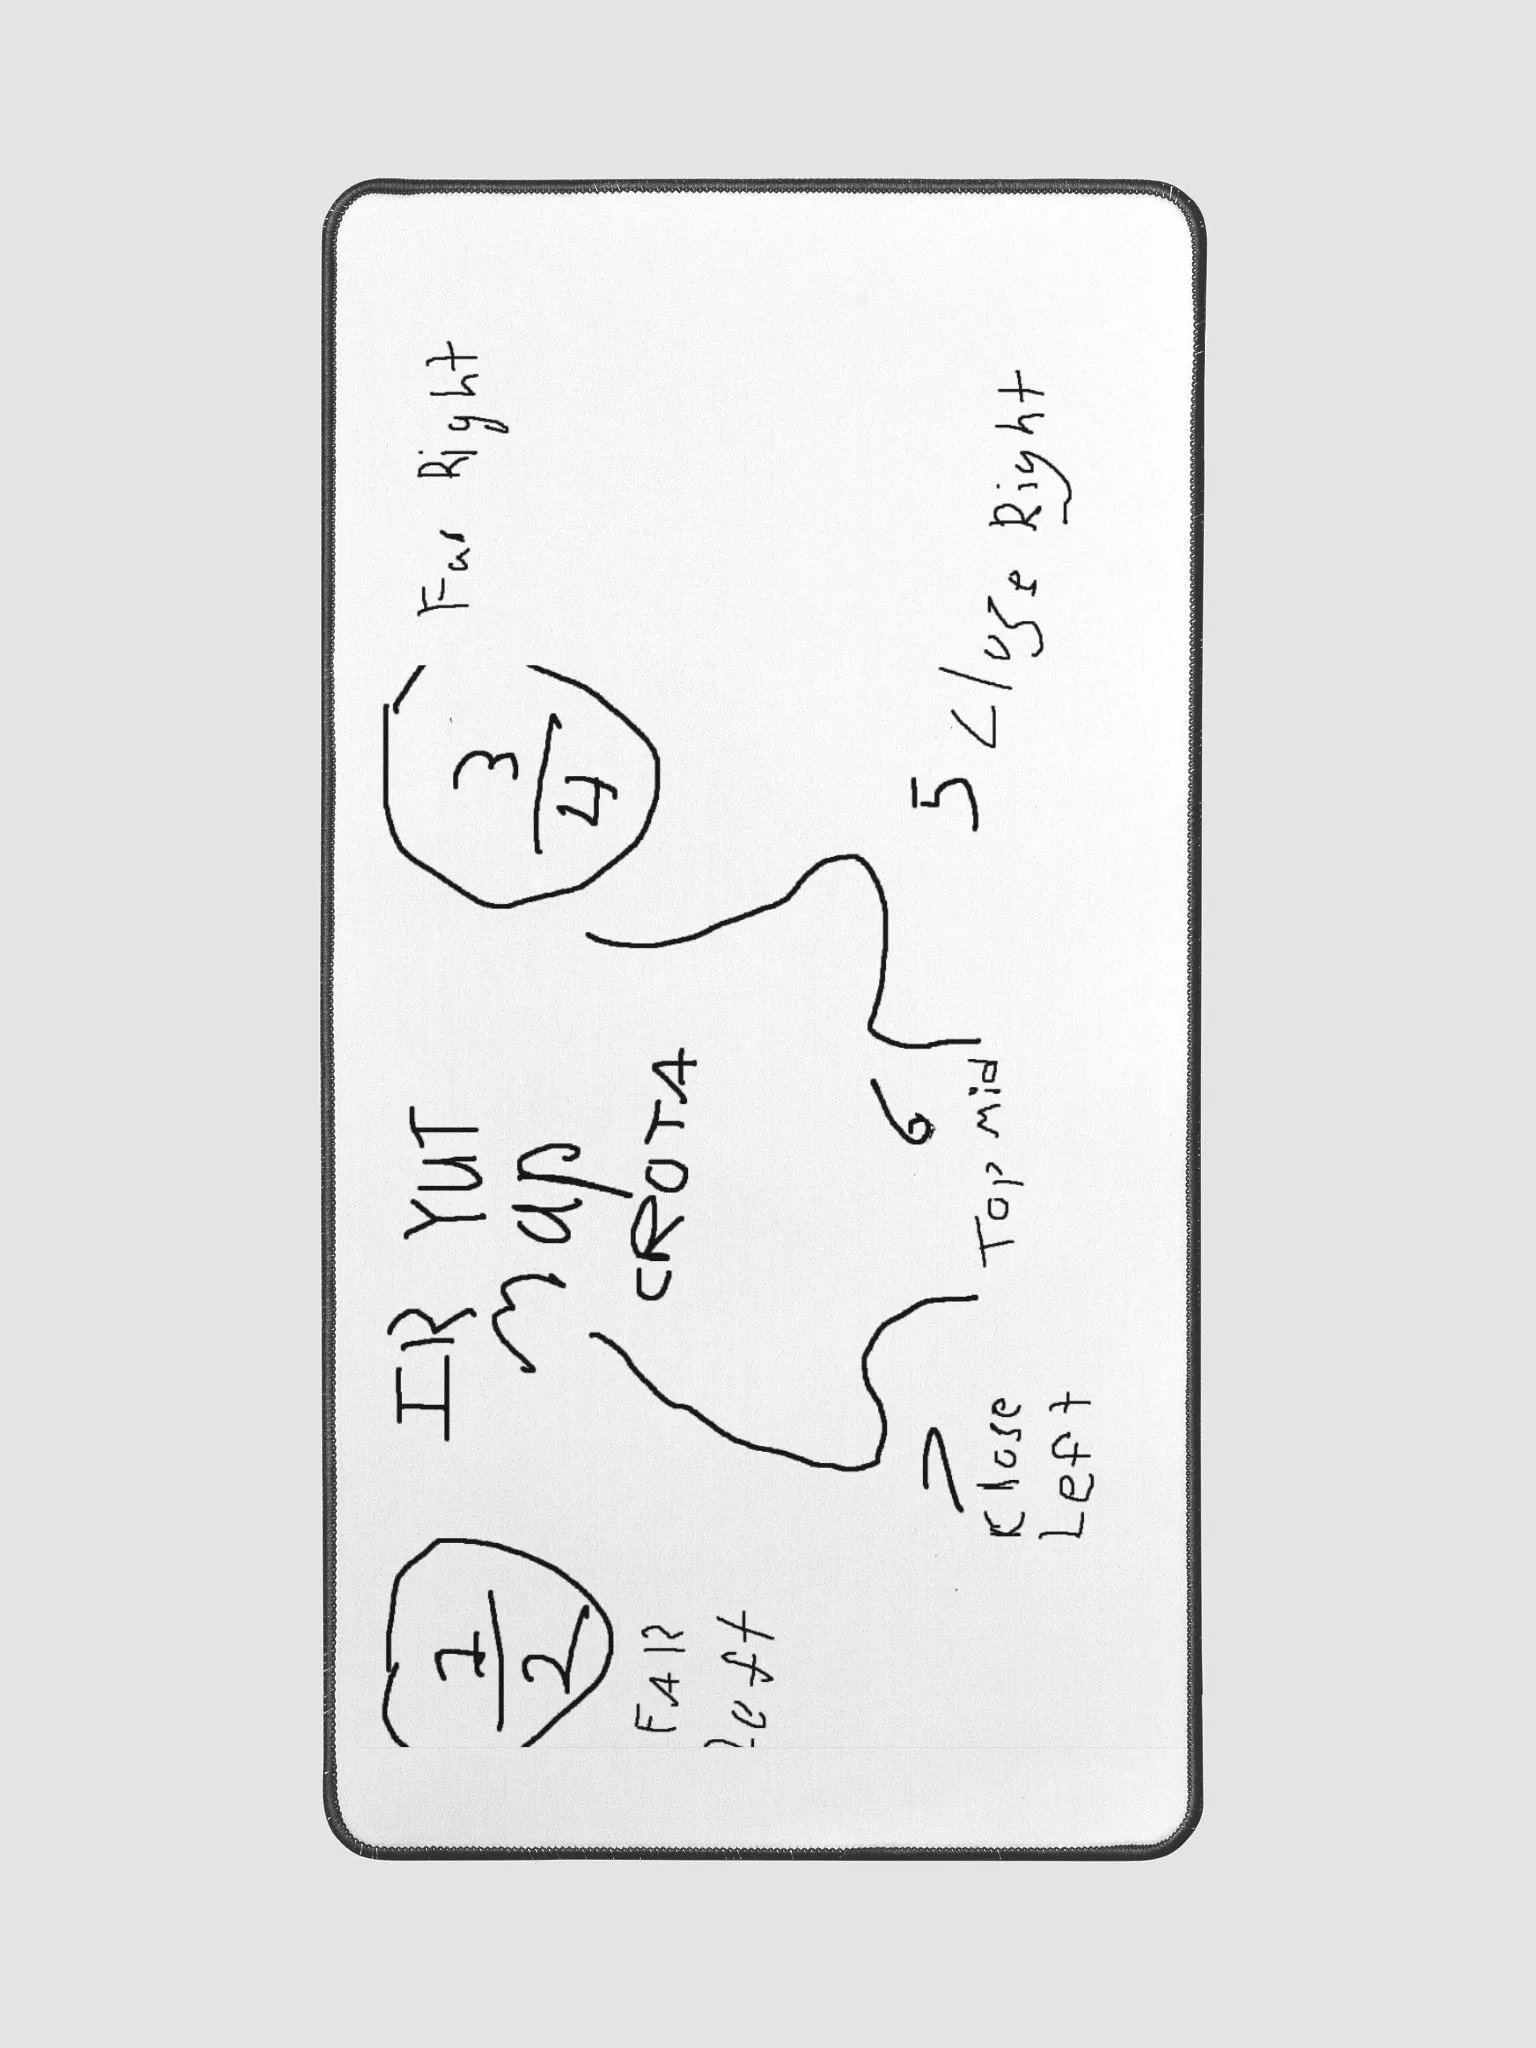 IR YUT
map
CROTA
1
2
FAR
Left
3
4
Far Right
7
Close
Left
6
Top Mid
5 Close Right